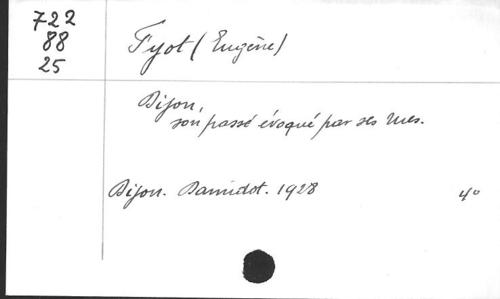 722
88
25
Fyot (Eugène)
Dijon,
son passé évoqué par ses rues.
Dijon. Damidot. 1928 4°